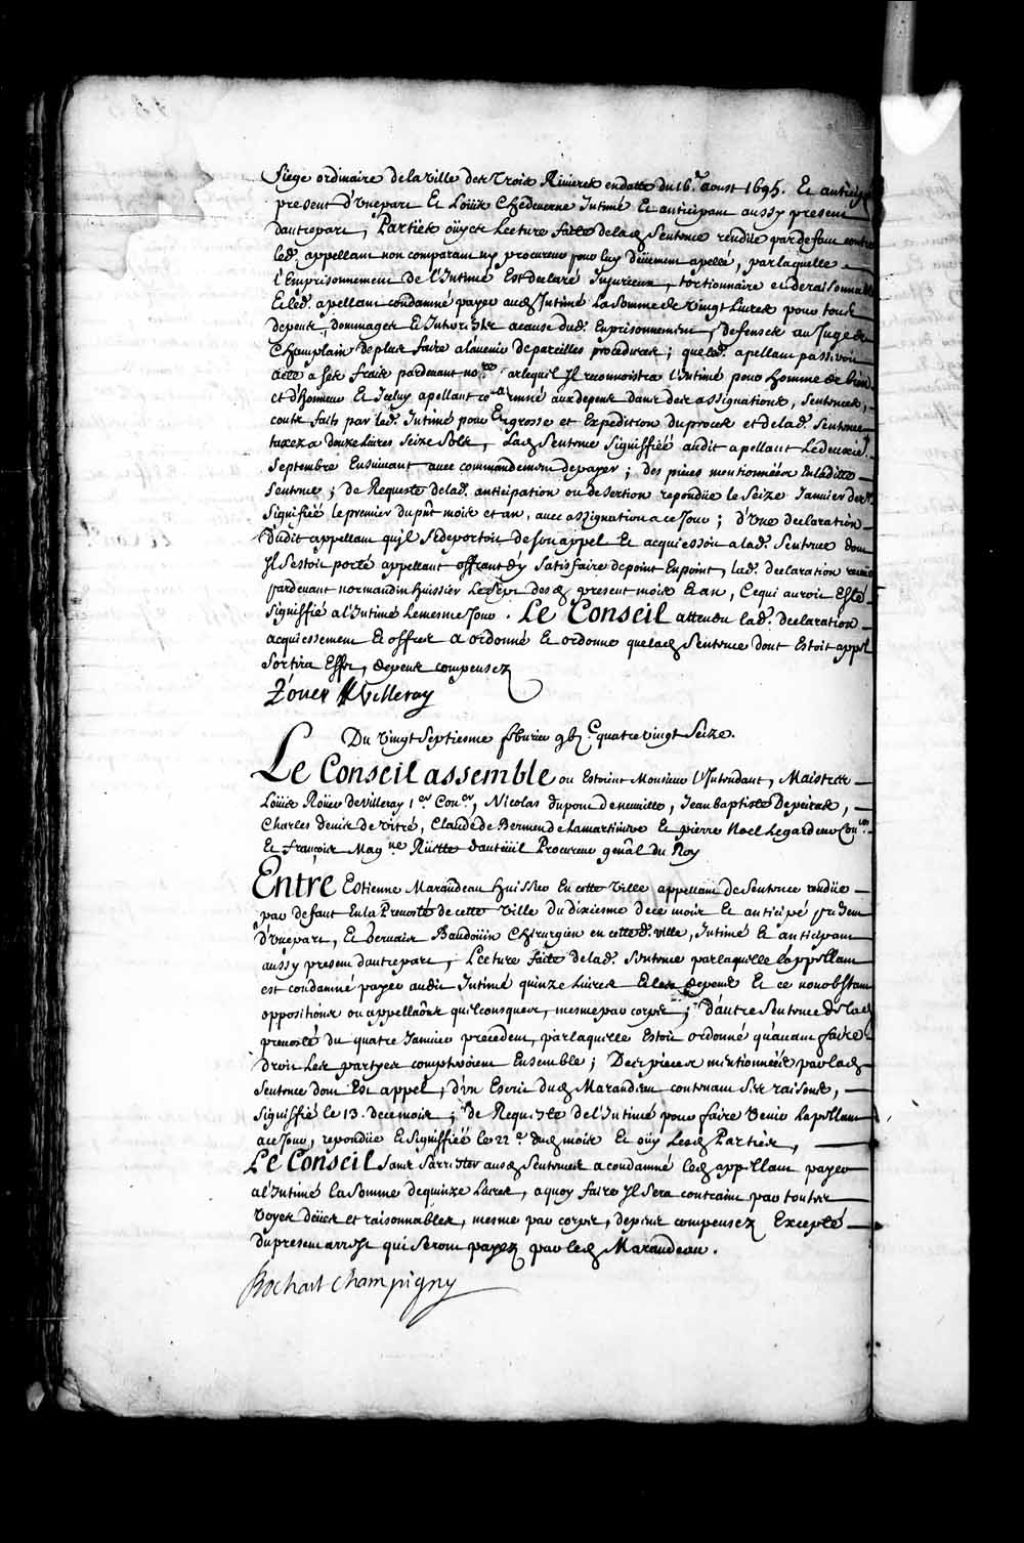 Siege ordinaire de la ville des Trois Rivieres en datte du 16.e aoust 1695. Et anticipé
present d'une part Et Loüis Chedeverne Intimé Et anticipant aussy present
d'autre part, Parties oüyes Lecture faite de lad. Sentence rendüe par defaut contre
led. appellant non comparant ny procureur pour luy deüement apellé, par laquelle
l'Emprisonnement de l'Intimé Est declaré Injurieux, tortionnaire et deraisonnable
Et led. apellant condamné payer aud. Intimé La somme de vingt Livres pour tous
depens dommages Et Interests acause dud. Enprisonnement, defenses au Juge de
Champlain de plus faire a l'avenir de pareilles procedures; que led. apellant passeroit
acte a ses frais pardevant no.re par lequel Il reconnoistra l'Intimé pour homme de bien
et d'honneur Et Iceluy apellant condamné aux depens dans des assignations, Sentences,
couts faits par led. Intimé pour Engrosse et Expedition du procés et de lad. Sentence
taxez a douze Livres Seize Sols, Lad. Sentence Signiffiée audit apellant Le deuxie.
Septembre Ensuivant avec commandement de payer; des pièces mentionnées En ladite
Sentence; de Requeste de lad. anticipation ou desertion repondüe le Seize Janvier der.
Signifiée le premier du pñt mois et an, avec assignation a ce Jour; d'Une declaration
dudit appellant qu'il Se deportoit de son appel Et acquiessoit a lad. Sentence dont
Il s'estoit porté appellant offrant d'y Satisfaire de point En point, lad. declaration
pardevant normandin huissier Le Sept des. present mois Et an, Ce qui auroit Esté
Signiffié a l'Intimé Le mesme Jour. Le Conseil attendu lad. declaration
acquiessement Et offres a ordonné Et ordonne que lad. Sentence dont Estoit appel
Sortira Effet, depens compensez
Roüer de Villeray
Du vingt Septiesme febvrier gbi.C quatre vingt Seize.
Le Conseil assemblé ou Estoient Monsieur l'Intendant, Maistres
Loüis Roüer de Villeray 1.er Con.er, Nicolas dupont de neuville, Jean baptiste Depeiras,
Charles denis de vitré, Claude de Bermen de Lamartiniere Et pierre Noel Legardeur Con.ers
Et françois Mag.ne Rüette dauteüil Procureur genâl du Roy
Entre Estienne Marandeau huissier En cette ville appellant de Sentence rendüe
par defaut En la Prevosté de cette ville du dixiesme de ce mois Et anticipé present
d'une part, Et Gervais Baudoüin Chirurgien en cette d. ville, Intimé Et anticipant
aussy present d'autre part, Lecture faite de lad. Sentence par laquelle l'appellant
est condamné payer audit Intimé quinze Livres Et les depens Et ce nonobstant
oppositions ou appellaõns quelconques, mesme par corps; d'autre Sentence de lad.
prevosté du quatre Janvier precedent, par laquelle Estoit ordonné qu'avant faire
droit Les partyes compteroient Ensemble; Des pieces mentionnées par lad.
Sentence dont Est appel, d'vn Escrit dud. Marandeau contenant Ses raisons,
Signiffié le 13. de ce mois; de Requeste de l'Intimé pour faire venir l'apellant
a ce Jour, repondüe Et Signiffiée le 22.e dud. mois Et oüy Lesd. Parties,
Le Conseil Sans s'arrester ausd. Sentences a condamné led. appellant payer
a l'Intimé la Somme de quinze Livres, a quoy faire Il Sera contraint par toutes
voyes düës et raisonnables, mesme par corps, depens compensez Excepté
du present arrest qui Seront payez par led. Marandeau.
Bochart Champigny